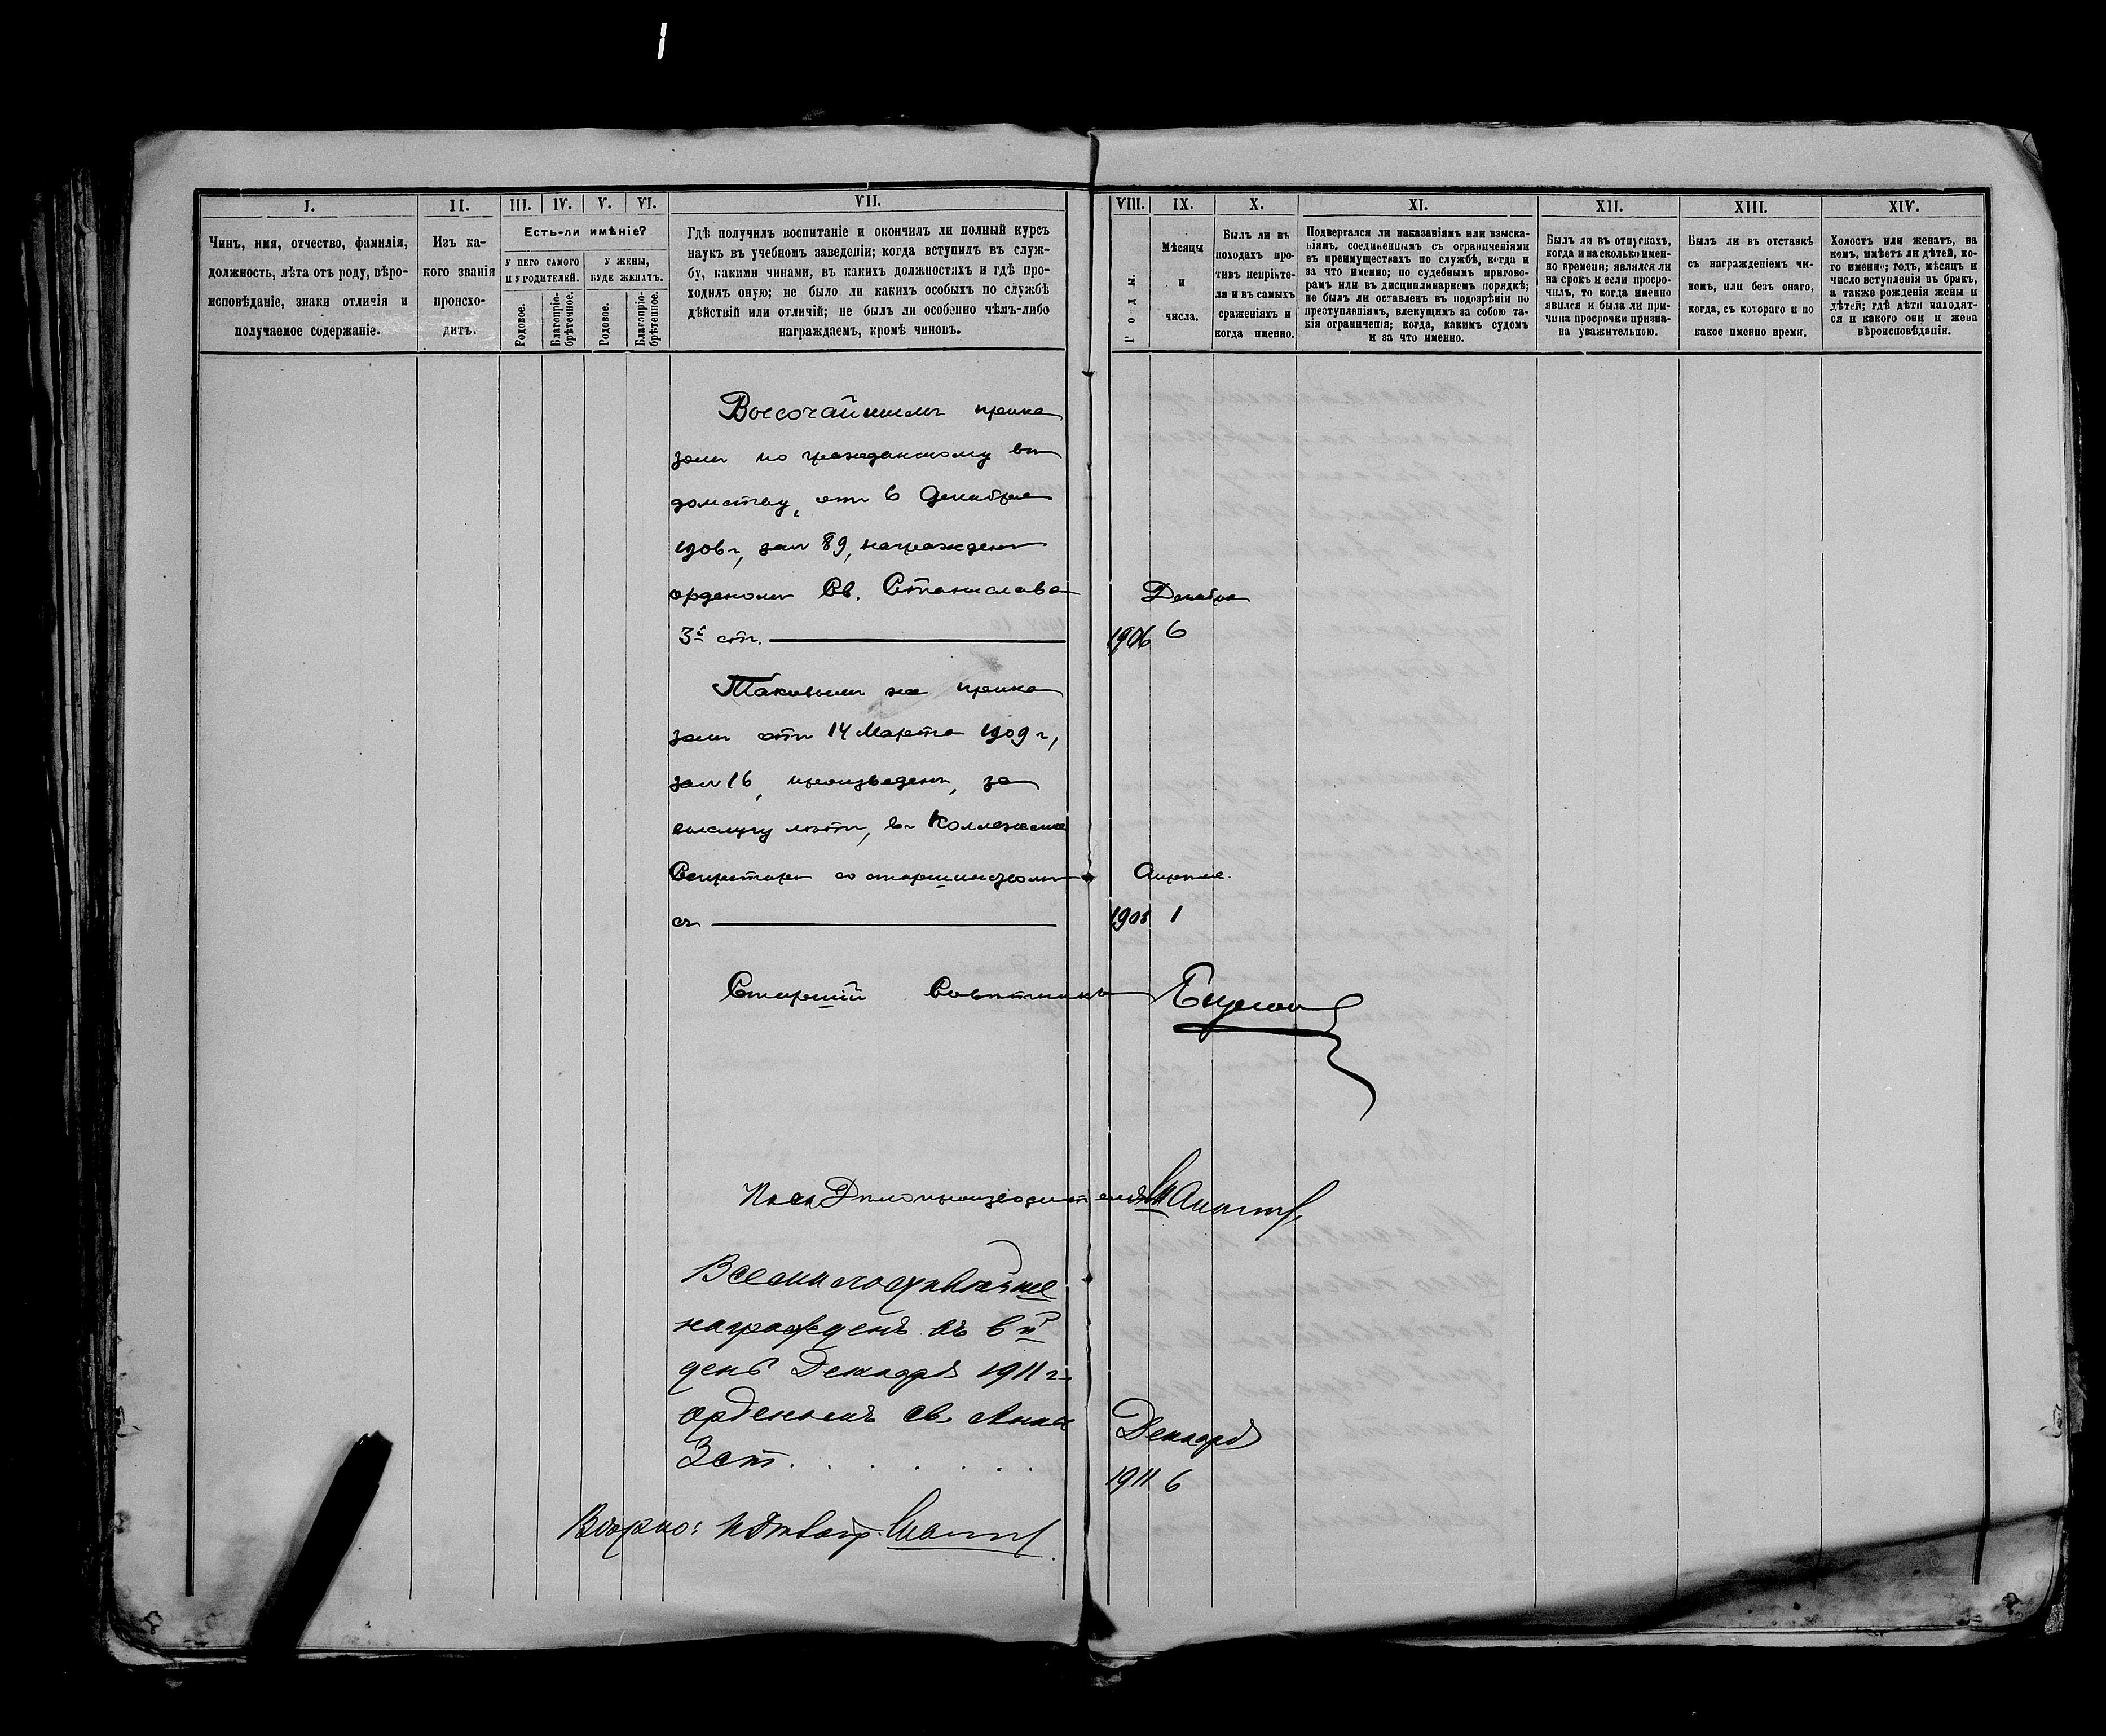 I.
Чинъ, имя, отчество, фамилія,
должность, лѣта отъ роду, вѣро-
исповѣданіе, знаки отличія и
получаемое содержаніе.
II.
Изъ ка-
кого званія
происхо-
дитъ.
III. IV. V. VI.
Есть-ли имѣніе?
У НЕГО САМОГО
И У РОДИТЕЛЕЙ.
У ЖЕНЫ,
БУДЕ ЖЕНАТЪ.
Родовое.
Благопріо-
брѣтенное.
Родовое.
Благопріо-
брѣтенное.
VII.
Гдѣ получилъ воспитаніе и окончилъ ли полный курсъ
наукъ въ учебномъ заведеніи; когда вступилъ въ служ-
бу, какими чинами, въ какихъ должностяхъ и гдѣ про-
ходилъ оную; не было ли какихъ особыхъ по службѣ
дѣйствій или отличій; не былъ ли особенно чѣмъ-либо
награждаемъ, кромѣ чиновъ.
VIII.
Годы.
IX.
Мѣсяцы
и
числа.
X.
Былъ ли въ
походахъ про-
тивъ непріяте-
ля и въ самыхъ
сраженіяхъ и
когда именно.
XI.
Подвергался ли наказаніямъ или взыска-
ніямъ, соединеннымъ съ ограниченіями
въ преимуществахъ по службѣ, когда и
за что именно; по судебнымъ пригово-
рамъ или въ дисциплинарномъ порядкѣ;
не былъ ли оставленъ въ подозрѣніи по
преступленіямъ, влекущимъ за собою та-
кія ограниченія; когда, какимъ судомъ
и за что именно.
XII.
Былъ ли въ отпускахъ,
когда и на сколько имен-
но времени; являлся ли
на срокъ и если просро-
чилъ, то когда именно
явился и была ли при-
чина просрочки призна-
на уважительною.
XIII.
Былъ ли въ отставкѣ
съ награжденіемъ чи-
номъ, или безъ онаго,
когда, съ котораго и по
какое именно время.
XIV.
Холостъ или женатъ, на
комъ, имѣетъ ли дѣтей, ко-
го именно; годъ, мѣсяцъ и
число вступленія въ бракъ,
а также рожденія жены и
дѣтей; гдѣ дѣти находят-
ся и какого они и жена
вѣроисповѣданія.
Высочайшимъ прика
зомъ по гражданскому вѣ
домству, отъ 6 Декабря
1906 г, за № 89, награжденъ
орденомъ Св. Станислава
3й ст.
Декабря
1906 6
Таковымъ же прика
зомъ отъ 14 Марта 1909 г,
за № 16, произведенъ, за
выслугу лѣтъ, въ Коллежскіе
Секретари со старшинствомъ
съ
Апрѣля.
1908 1
Старшій Совѣтникъ
Дѣлопроизводителя
Всемилостивѣйше
награжденъ въ 6й
день Декабря 1911 г
орденомъ св. Анны
3 ст. . . . . . . .
Декабря
1911 6
Вѣрно: